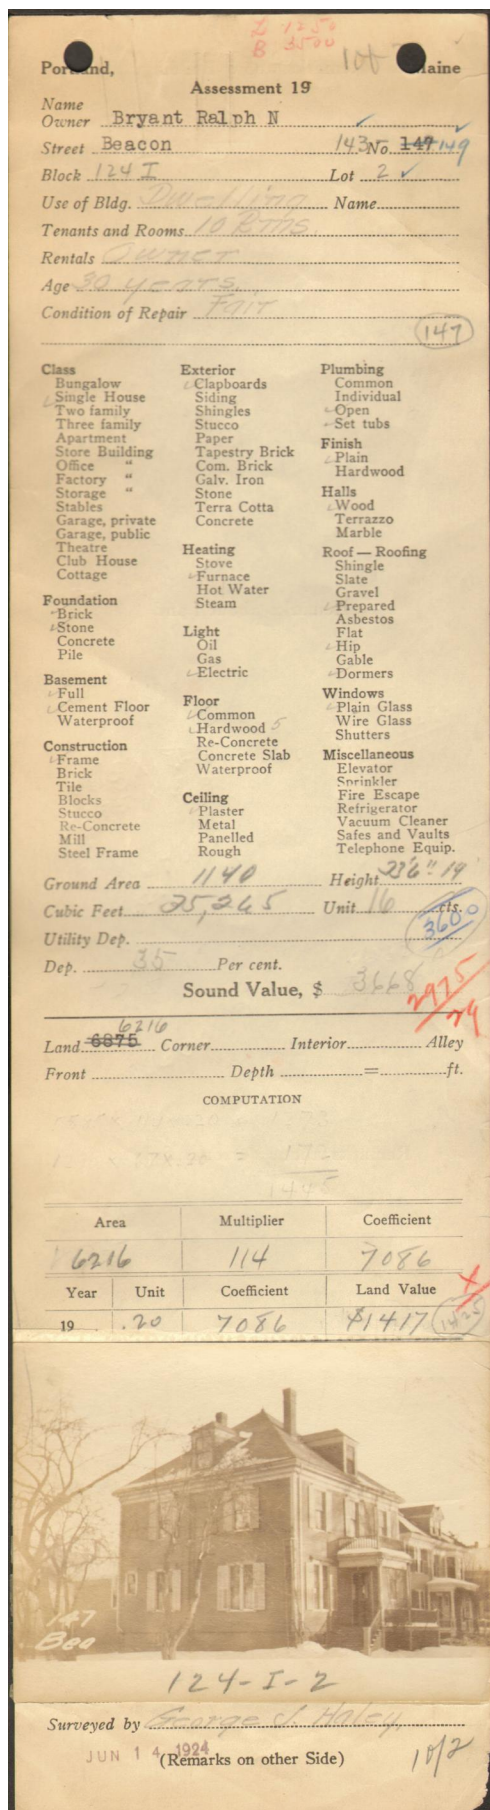 L 1250
B 3500
1 of 2
Portland, Maine
Assessment 19
Name
Owner Bryant Ralph N
Street Beacon 143 No. 147-149
Block 124 I Lot 2
Use of Bldg. Dwelling Name
Tenants and Rooms 10 Rms.
Rentals Owner
Age 30 years.
Condition of Repair Fair
147
Class
Bungalow
Single House
Two family
Three family
Apartment
Store Building
Office "
Factory "
Storage "
Stables
Garage, private
Garage, public
Theatre
Club House
Cottage
Foundation
Brick
Stone
Concrete
Pile
Basement
Full
Cement Floor
Waterproof
Construction
Frame
Brick
Tile
Blocks
Stucco
Re-Concrete
Mill
Steel Frame
Exterior
Clapboards
Siding
Shingles
Stucco
Paper
Tapestry Brick
Com. Brick
Galv. Iron
Stone
Terra Cotta
Concrete
Heating
Stove
Furnace
Hot Water
Steam
Light
Oil
Gas
Electric
Floor
Common
Hardwood 5
Re-Concrete
Concrete Slab
Waterproof
Ceiling
Plaster
Metal
Panelled
Rough
Plumbing
Common
Individual
Open
Set tubs
Finish
Plain
Hardwood
Halls
Wood
Terrazzo
Marble
Roof — Roofing
Shingle
Slate
Gravel
Prepared
Asbestos
Flat
Hip
Gable
Dormers
Windows
Plain Glass
Wire Glass
Shutters
Miscellaneous
Elevator
Sprinkler
Fire Escape
Refrigerator
Vacuum Cleaner
Safes and Vaults
Telephone Equip.
Ground Area 1140 Height 23'6" 19
Cubic Feet 35,265 Unit 16 cts.
3600
Utility Dep.
Dep. 35 Per cent.
Sound Value, $ 3668
2975
24
6216
Land 6875 Corner Interior Alley
Front Depth = ft.
COMPUTATION
1445
Area Multiplier Coefficient
6216 114 7086
Year Unit Coefficient Land Value
19 .20 7086 $1417 1425
147
Bea
124-I-2
Surveyed by George J. Haley.
JUN 14 1924
(Remarks on other Side) 1 of 2